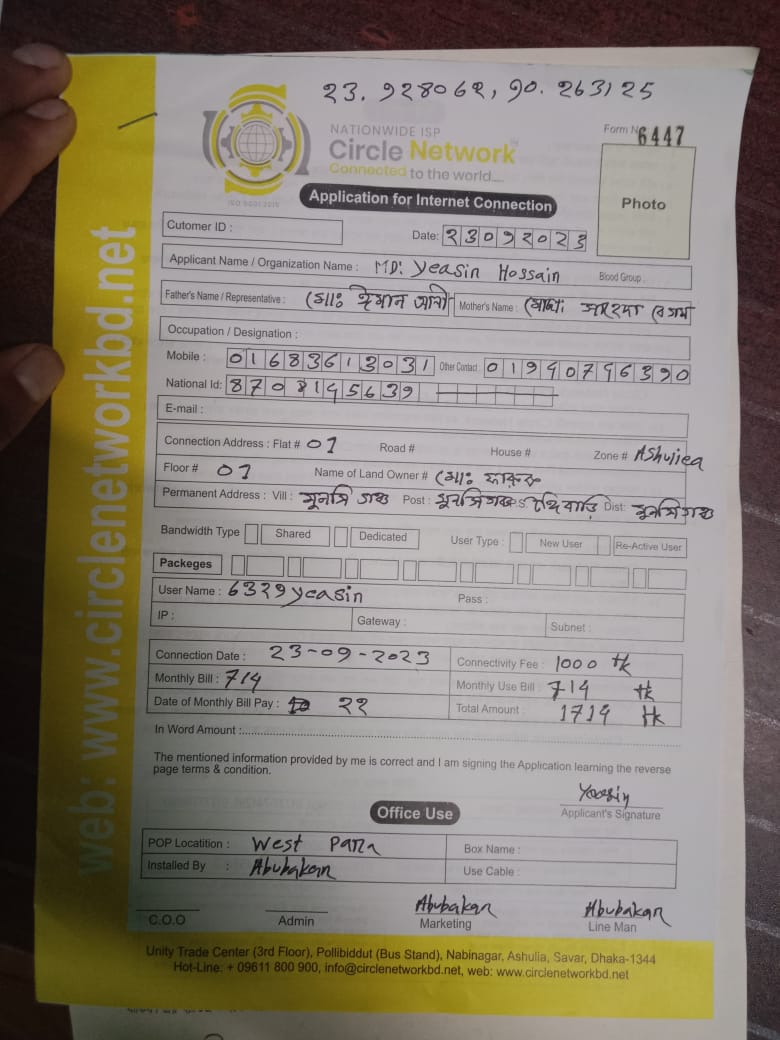 23.928062, 90.263125
NATIONWIDE ISP
Circle Network
Connected to the world....
ISO 9001:2015
Form No 6447
Application for Internet Connection
Photo
Cutomer ID :
Date: 23092023
Applicant Name / Organization Name : MD: Yeasin Hossain Blood Group :
Father's Name / Representative : মোঃ ঈমান আলী Mother's Name : মোছাঃ বেগম
Occupation / Designation :
Mobile : 01683613031 Other Contact : 01940796390
National Id: 8708145639
E-mail :
Connection Address : Flat # 01 Road # House # Zone # Ashuliea
Floor # 01 Name of Land Owner # মোঃ ফারুক
Permanent Address : Vill : মুনসিগঞ্জ Post : মুনসিগঞ্জ P.S: টংগিবাড়ি Dist: মুনসিগঞ্জ
Bandwidth Type Shared Dedicated User Type : New User Re-Active User
Packeges
User Name : 6329yeasin Pass :
IP : Gateway : Subnet :
Connection Date : 23-09-2023 Connectivity Fee : 1000 Tk
Monthly Bill : 714 Monthly Use Bill : 714 Tk
Date of Monthly Bill Pay : 22 Total Amount : 1714 Tk
In Word Amount :
The mentioned information provided by me is correct and I am signing the Application learning the reverse
page terms & condition.
Yeasin
Applicant's Signature
Office Use
POP Locatition : West Para Box Name :
Installed By : Abubakar Use Cable :
Abubakar Abubakar
C.O.O Admin Marketing Line Man
Unity Trade Center (3rd Floor), Pollibiddut (Bus Stand), Nabinagar, Ashulia, Savar, Dhaka-1344
Hot-Line: + 09611 800 900, info@circlenetworkbd.net, web: www.circlenetworkbd.net
web: www.circlenetworkbd.net